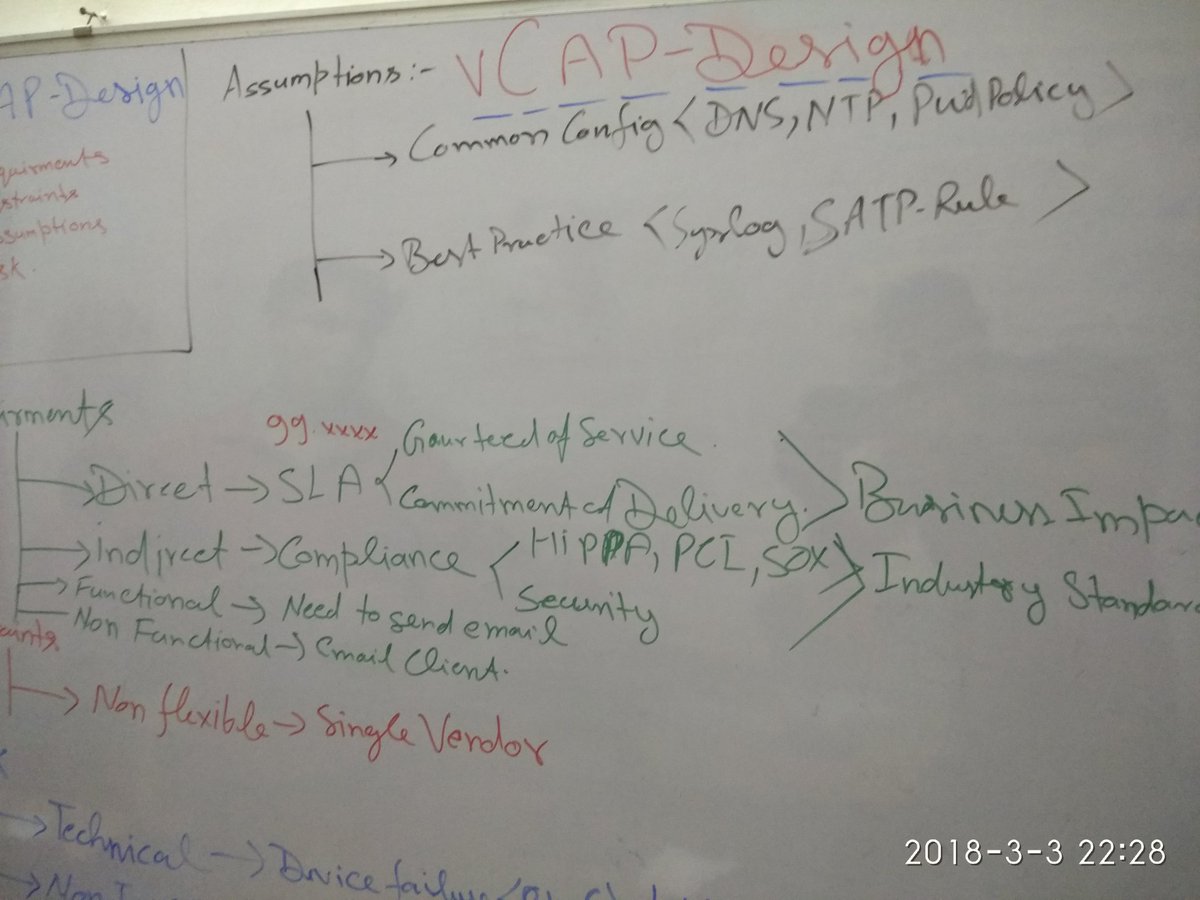 vCAP-Design
AP-Design
quirments
straints
sumptions
sk.
Assumptions:-
Common Config < DNS, NTP, Pwd Policy >
Best Practice < Syslog, SATP-Rule >
irments
99.xxxx
Direct → SLA < Gaurteed of Service.
Commitment of Delivery. > Business Impac
Indirect → Compliance < HiPPA, PCI, SOX
Security > Industry Standard
Functional → Need to send email
Non Functional → Email Client.
aints.
Non flexible → Single Vendor
→ Technical → Device failure
→ Non
2018-3-3 22:28